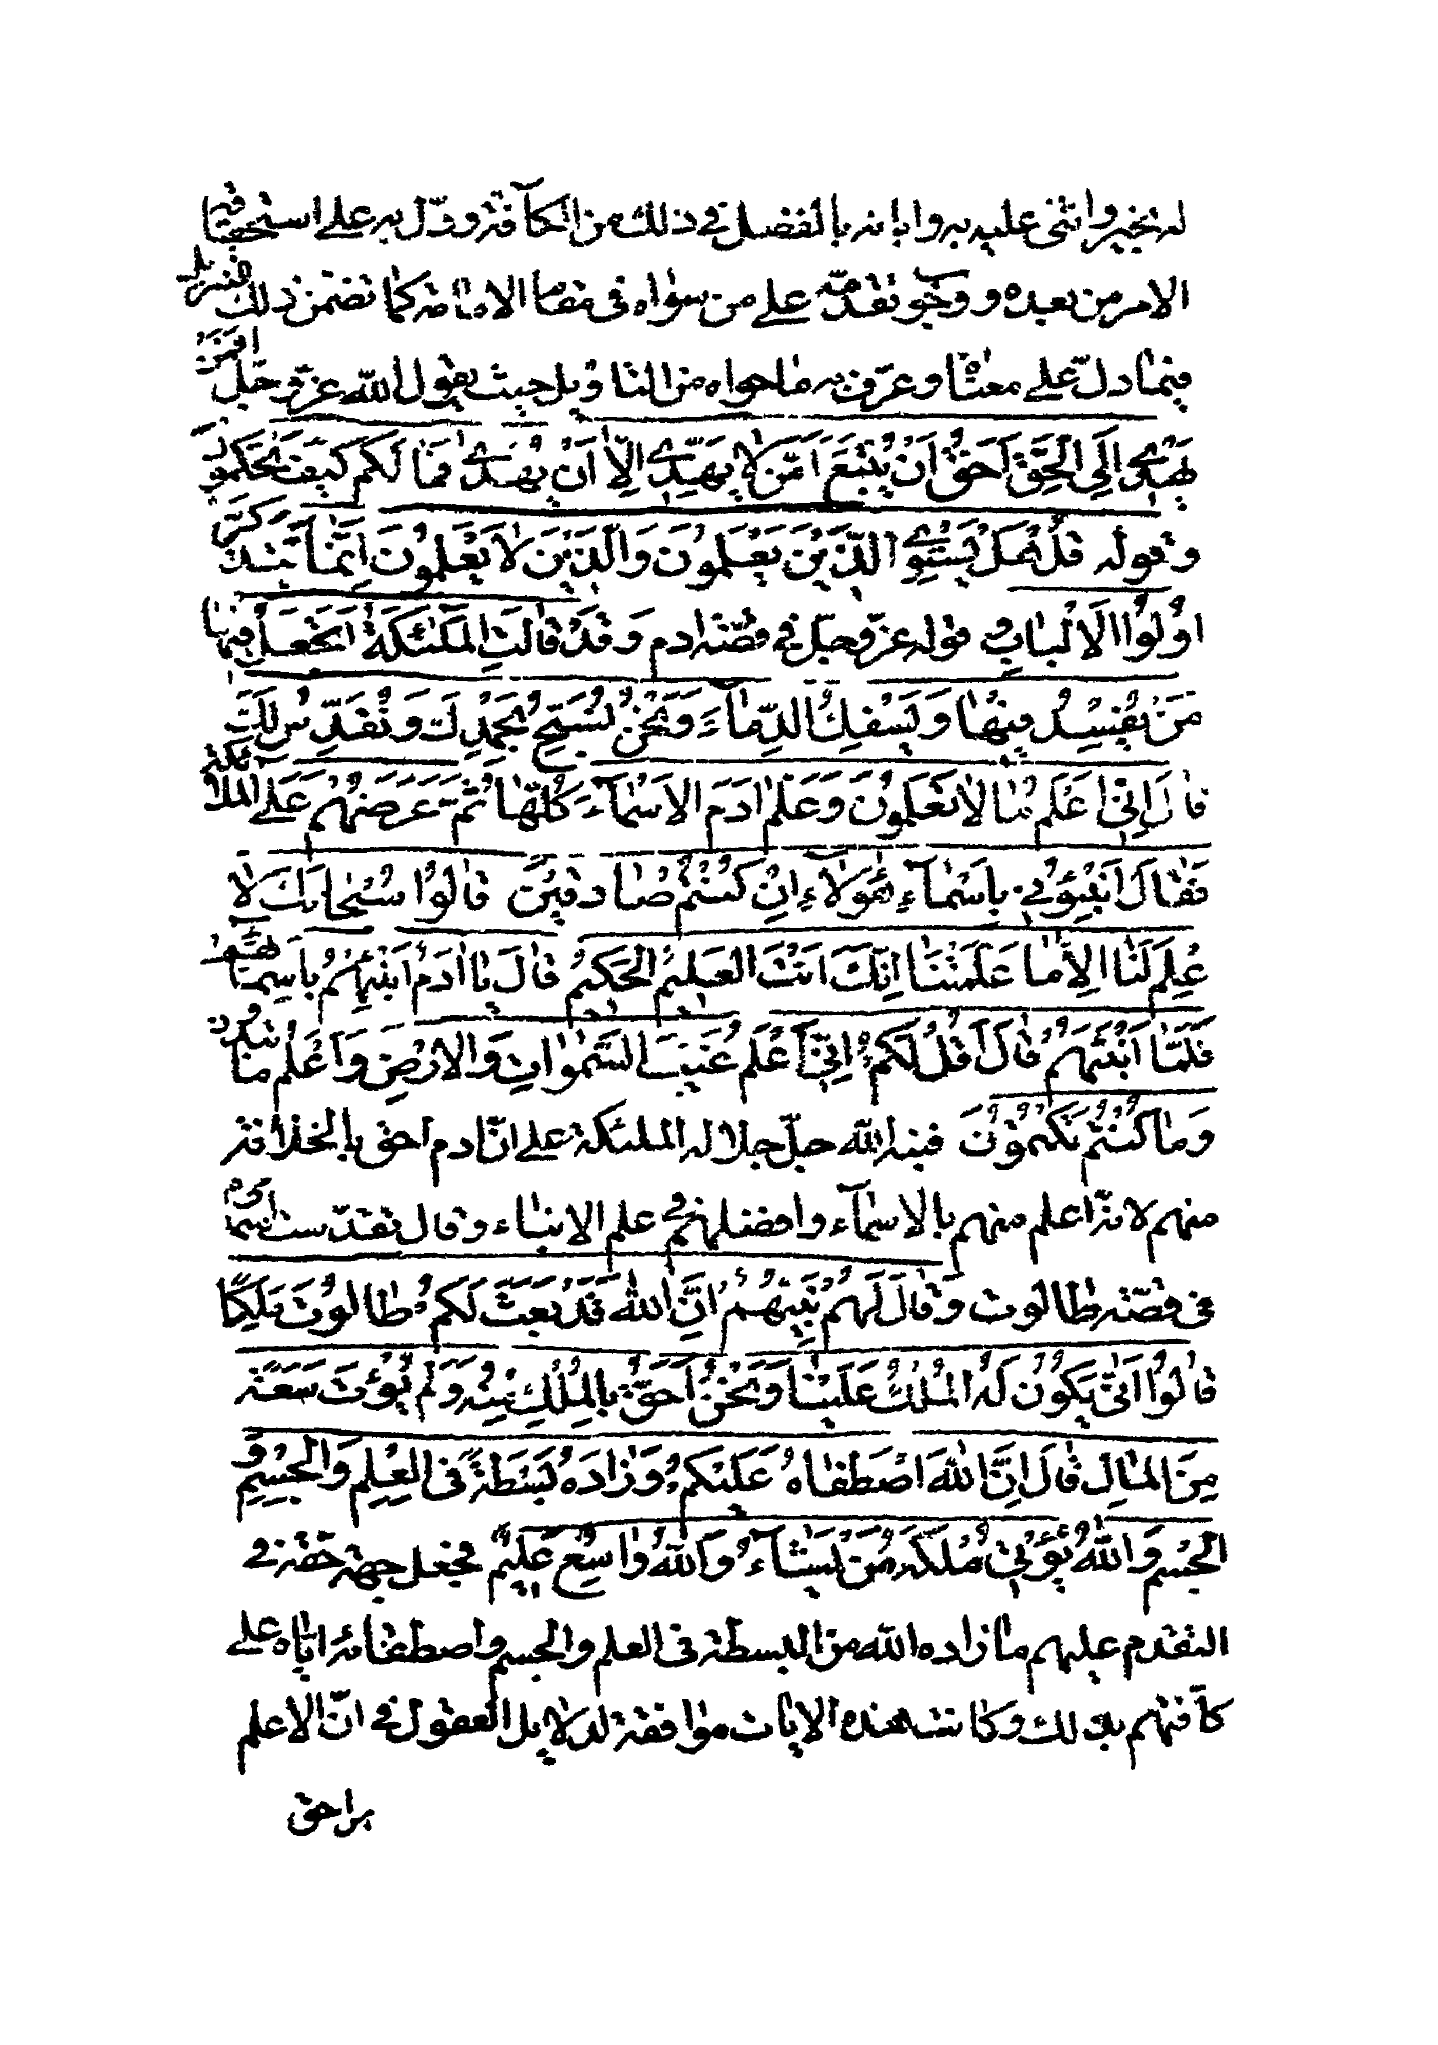 له بخير واثنى عليه به وابانه بالفضل في ذلك من الكآفة ودلّ به على استحقاقه
الامر من بعده ووجوب تقدمه على من سواه في مقام الامامة كما تضمن ذلك التنزيل
فيما دلّ على معناه وعرّف به ما حواه من التأويل حيث يقول الله عزّ وجلّ افَمَنْ
يَهْدِي اِلَى الْحَقِّ اَحَقُّ اَنْ يُتَّبَعَ اَمَّنْ لا يَهِدِّي اِلّا اَنْ يُهْدى فَمَا لَكُم كَيْفَ تَحْكُمُونَ
وقوله قُلْ هَلْ يَسْتَوِي الَّذِيْنَ يَعْلَمُونَ وَالَّذِيْنَ لا يَعْلَمُونَ اِنَّمَا يَتَذَكَّرُ
اُولُوا الاَلْبَابِ وقوله عزّ وجلّ في قصّة ادم وَقَدْ قَالَتِ الْمَلٰئكَةُ اَتَجْعَلُ فِيهَا
مَنْ يُفْسِدُ فِيْهَا وَيَسْفِكُ الدِّمَآءَ وَنَحْنُ نُسَبِّحُ بِحَمْدِكَ وَنُقَدِّسُ لَكَ
قَالَ اِنِّي اَعْلَمُ مَا لا تَعْلَمُونَ وَعَلَّمَ ادَمَ الاَسْمَآءَ كُلَّهَا ثُمَّ عَرَضَهُمْ عَلَى الْمَلائكة
فَقَالَ اَنْبِئُونِي بِاَسْمَآءِ هٰؤُلآءِ اِنْ كُنْتُمْ صَادِقِيْنَ قَالُوْا سُبْحَانَكَ لا
عِلْمَ لَنَا اِلّا مَا عَلَّمْتَنَا اِنَّكَ اَنْتَ الْعَلِيْمُ الْحَكِيْمُ قَالَ يَا ادَمُ اَنْبِئْهُمْ بِاَسْمَائهم
فَلَمَّا اَنْبَئَهُمْ قَالَ اَلَمْ اَقُلْ لَكُمْ اِنِّي اَعْلَمُ غَيْبَ السَّمٰوَاتِ وَالاَرْضِ وَاَعْلَمُ مَا تُبْدُونَ
وَمَا كُنْتُمْ تَكْتُمُوْنَ فنبه الله جلّ جلاله الملئكة على انّ ادم احق بالخلافة
منهم لانّه اعلم منهم بالاسمآء وافضلهم في علم الانباء وقال تقدّست اسماؤه
في قصّة طالوت وَقَالَ لَهُمْ نَبِيُّهُمْ اِنَّ اللهَ قَدْ بَعَثَ لَكُمْ طَالُوْتَ مَلِكًا
قَالُوْا اَنّى يَكُوْنُ لَهُ الْمُلْكُ عَلَيْنَا وَنَحْنُ اَحَقُّ بِالْمُلْكِ مِنْهُ وَلَمْ يُؤْتَ سَعَةً
مِنَ الْمَالِ قَالَ اِنَّ اللهَ اصْطَفَاهُ عَلَيْكُمْ وَزَادَهُ بَسْطَةً فِي الْعِلْمِ وَالْجِسْمِ
وَاللهُ يُؤْتِيْ مُلْكَهُ مَنْ يَشَآءُ وَاللهُ وَاسِعٌ عَلِيْمٌ فجعل جهة حقه في
التقدم عليهم ما زاده الله من البسطة في العلم والجسم واصطفائه اياه على
كآفتهم بذلك وكانت هذه الايات موافقة لدلايل العقول في انّ الاعلم
براحق